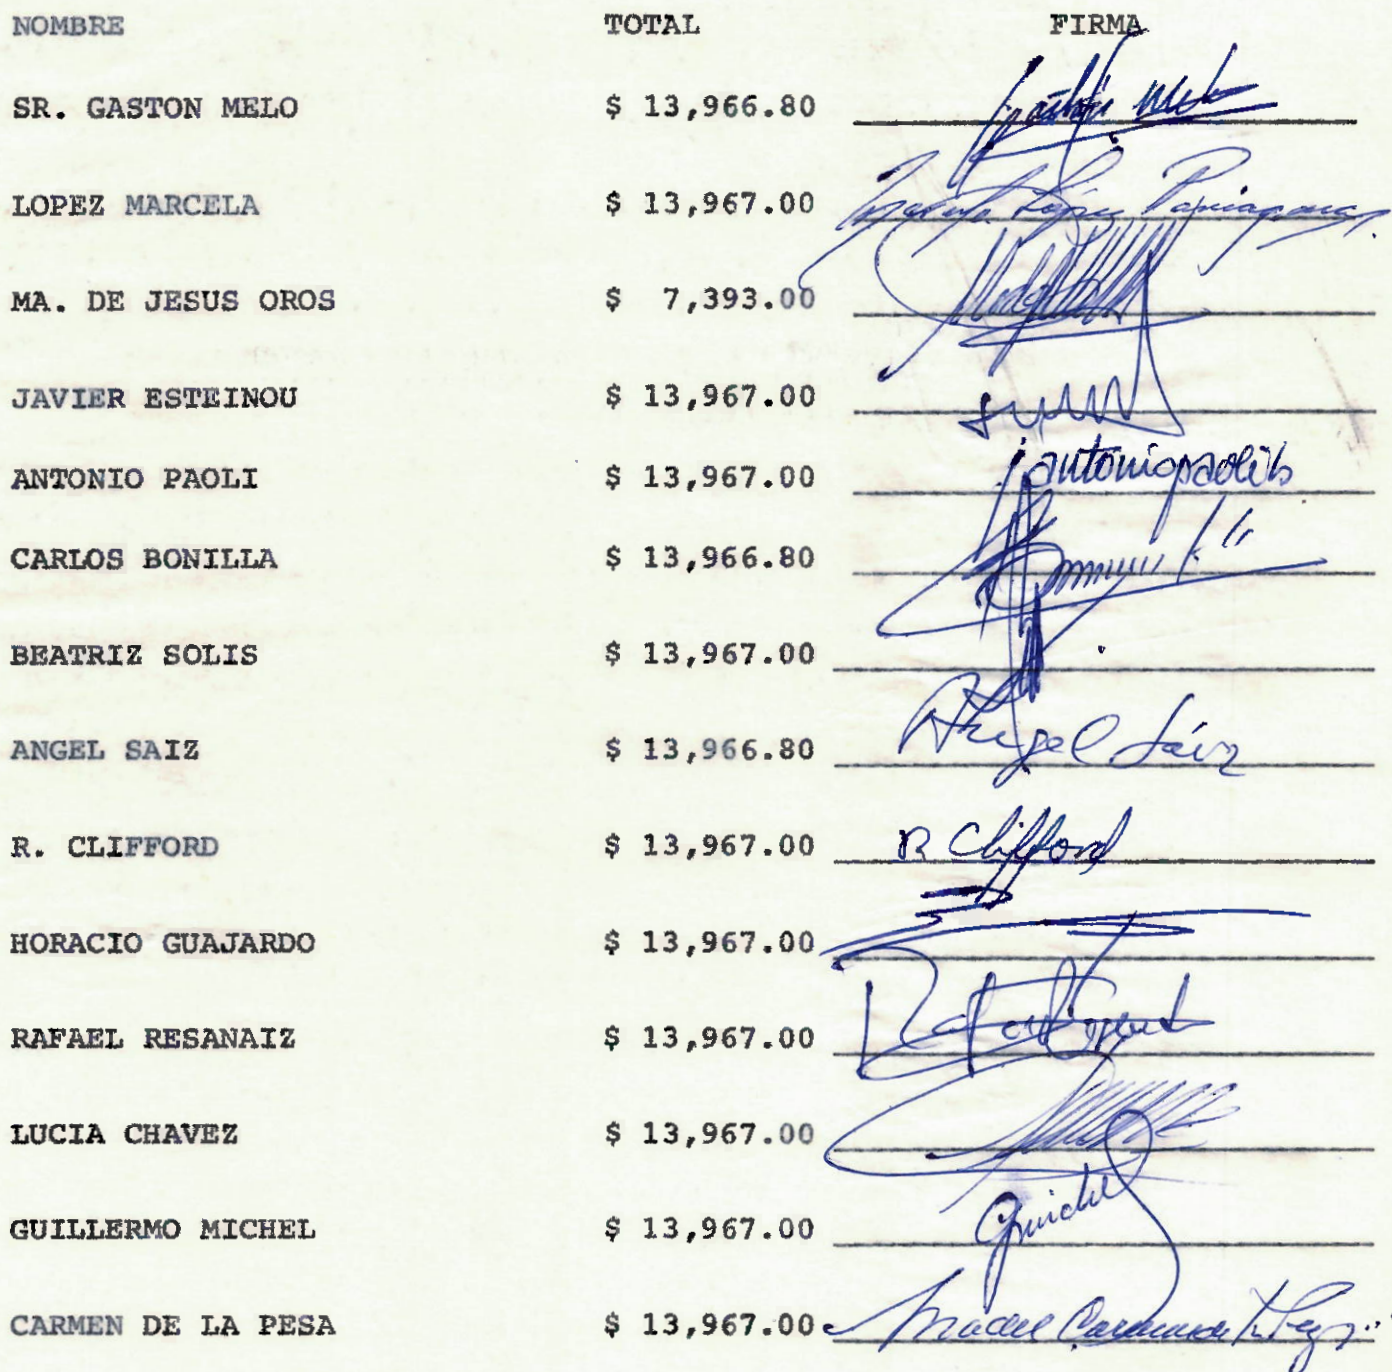 NOMBRE TOTAL FIRMA
SR. GASTON MELO $ 13,966.80 Gastón Melo
LOPEZ MARCELA $ 13,967.00 Marcela López Paniagua
MA. DE JESUS OROS $ 7,393.00
JAVIER ESTEINOU $ 13,967.00
ANTONIO PAOLI $ 13,967.00 antoniopaoli b
CARLOS BONILLA $ 13,966.80
BEATRIZ SOLIS $ 13,967.00
ANGEL SAIZ $ 13,966.80 Angel Sáiz
R. CLIFFORD $ 13,967.00 R Clifford
HORACIO GUAJARDO $ 13,967.00
RAFAEL RESANAIZ $ 13,967.00
LUCIA CHAVEZ $ 13,967.00
GUILLERMO MICHEL $ 13,967.00 Gmichel
CARMEN DE LA PESA $ 13,967.00